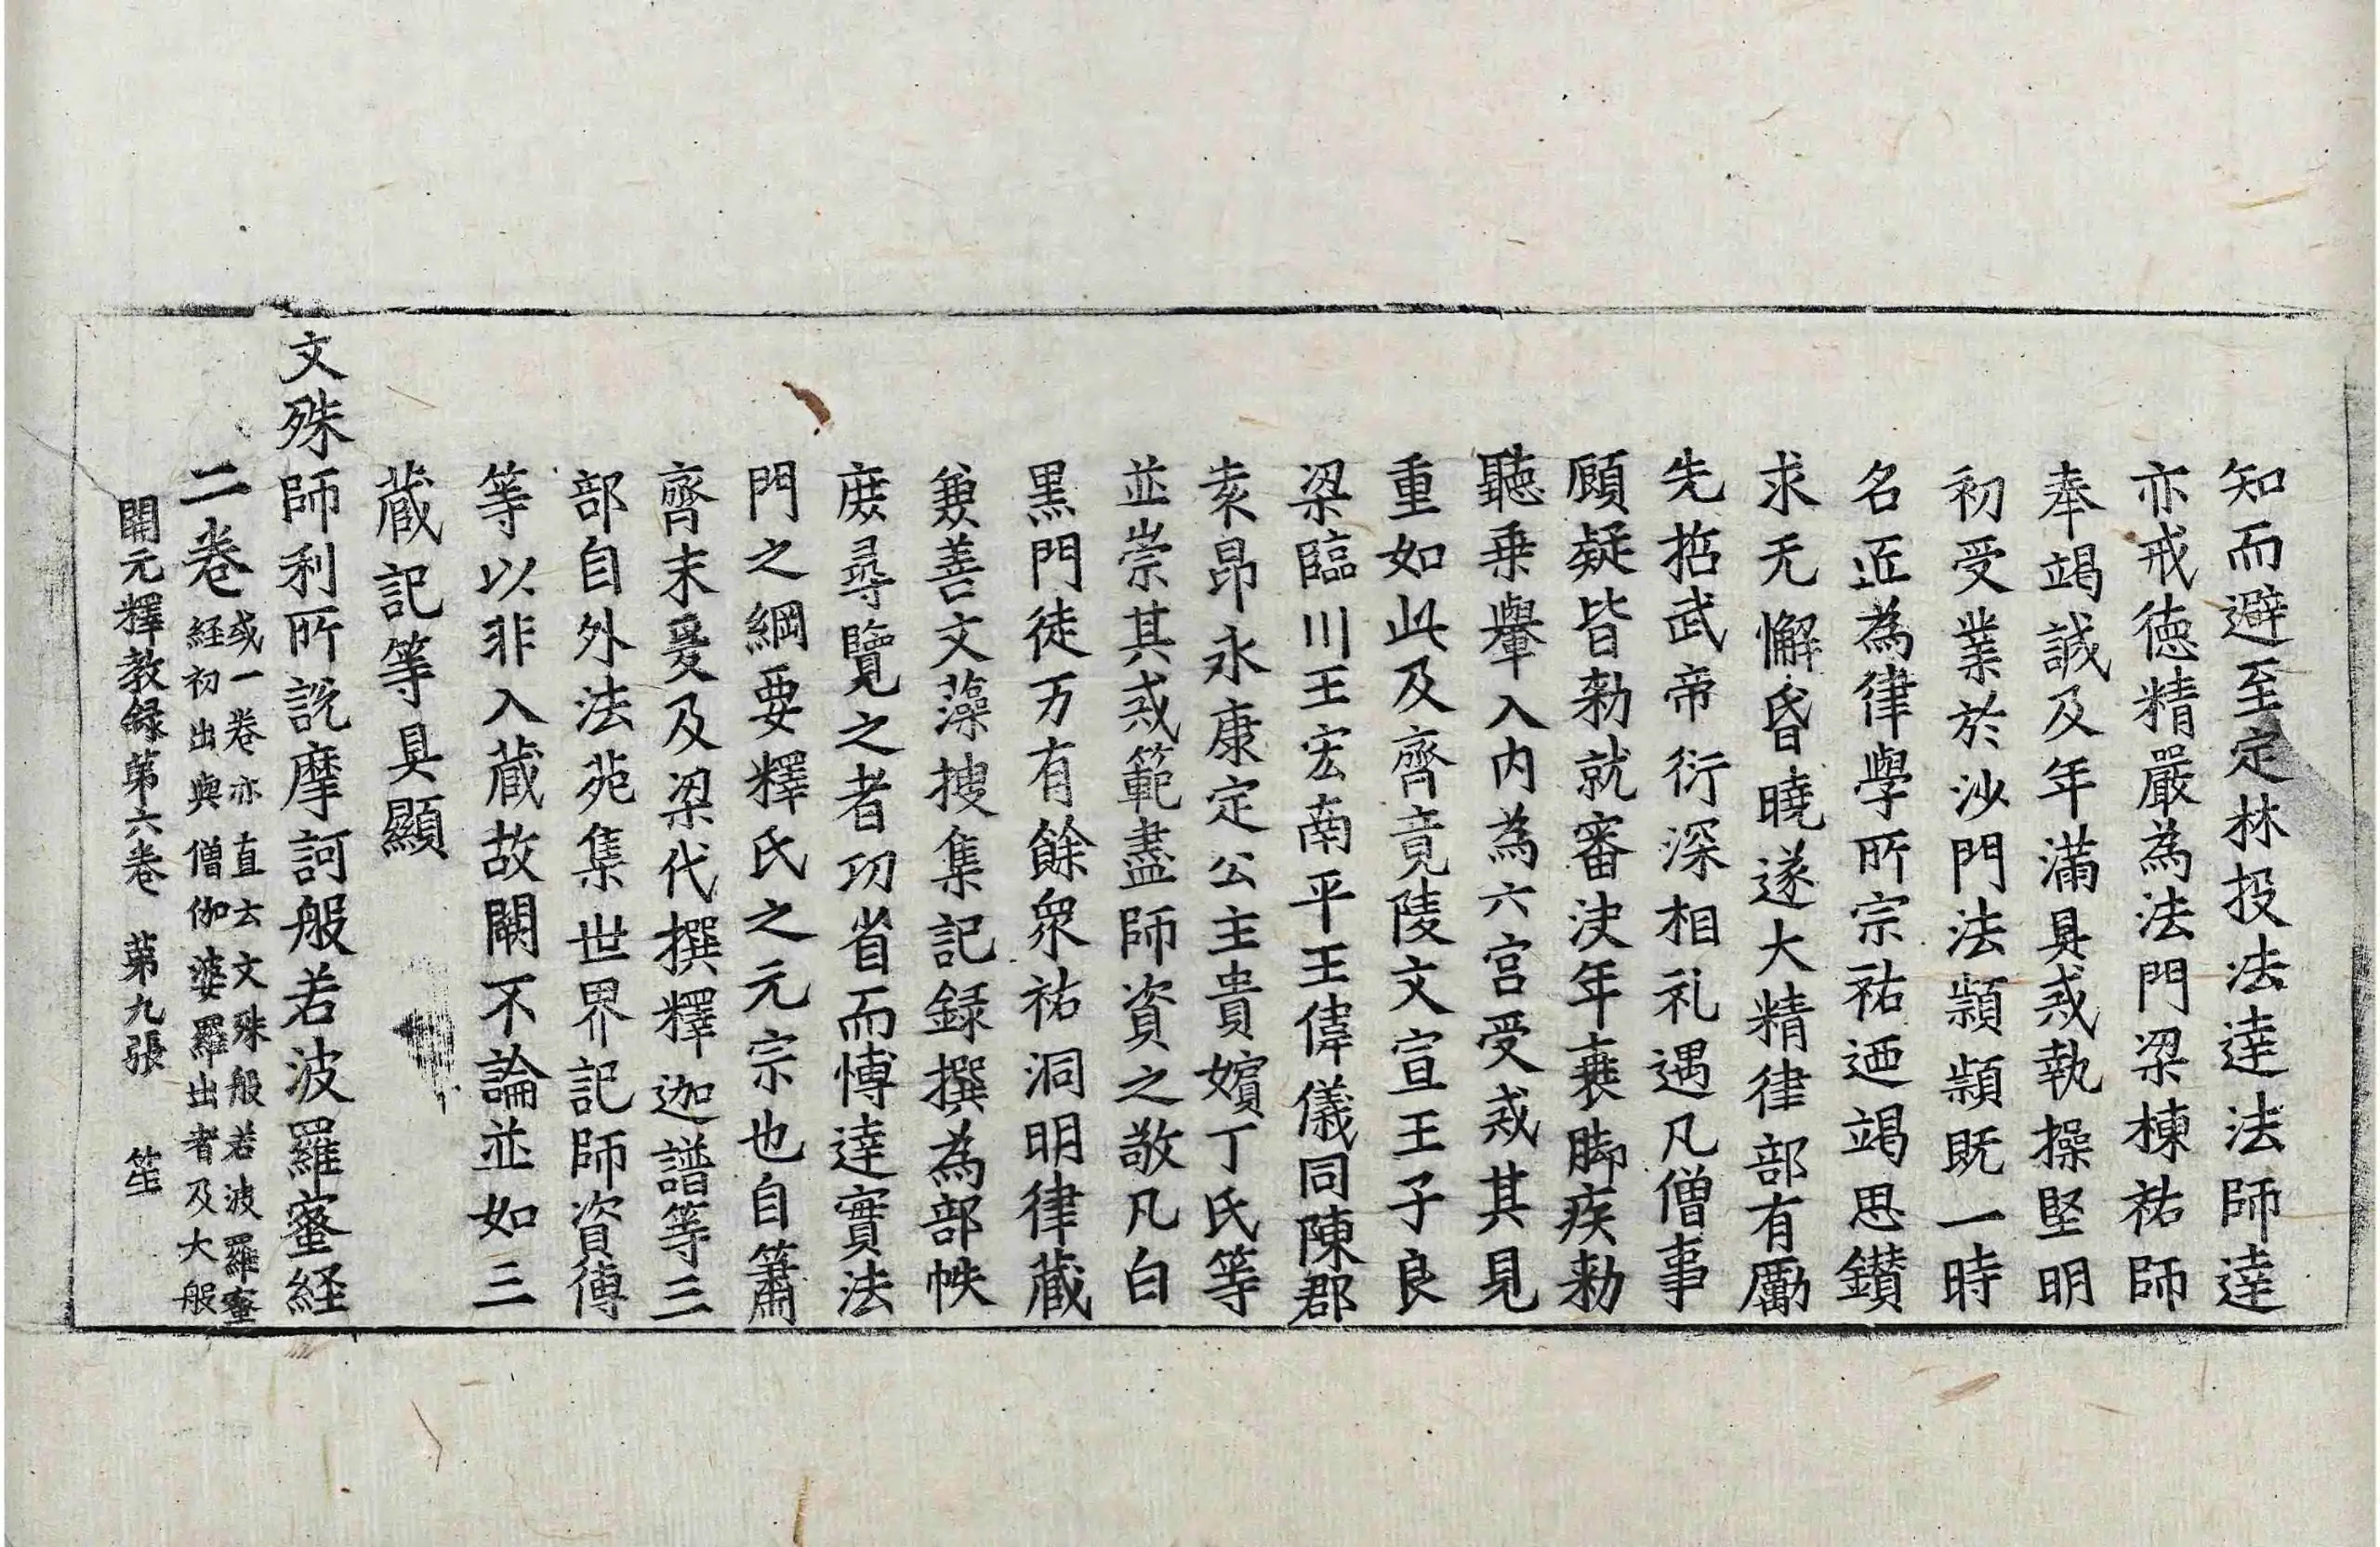 知而避至定林投法達法師達
亦戒徳精嚴為法門梁棟祐師
奉竭誠及年滿具戒執操堅明
初受業於沙門法穎穎既一時
名匠為律學所宗祐迺竭思鑚
求无懈昏曉遂大精律部有勵
先哲武帝衍深相礼遇凡僧事
碩疑皆勑就審决年衰脚疾勑
聽乗輿入内為六宮受戒其見
重如此及齊竟陵文宣王子良
梁臨川王宏南平王偉儀同陳郡
袁昂永康定公主貴嬪丁氏等
並崇其戒範盡師資之敬凡白
黒門徒万有餘衆祐洞明律蔵
兼善文藻捜集記録撰為部帙
庻尋覽之者功省而博達實法
門之綱要釋氏之元宗也自簫
齊末爰及梁代撰釋迦譜等三
部自外法苑集世界記師資傳
等以非入蔵故闕不論並如三
蔵記等具顯
文殊師利所說摩訶般若波羅蜜経
二巻
或一巻亦直云文殊般若波羅蜜
経初出與僧伽婆羅出者及大般
開元釋教録苐六巻 苐九張 笙